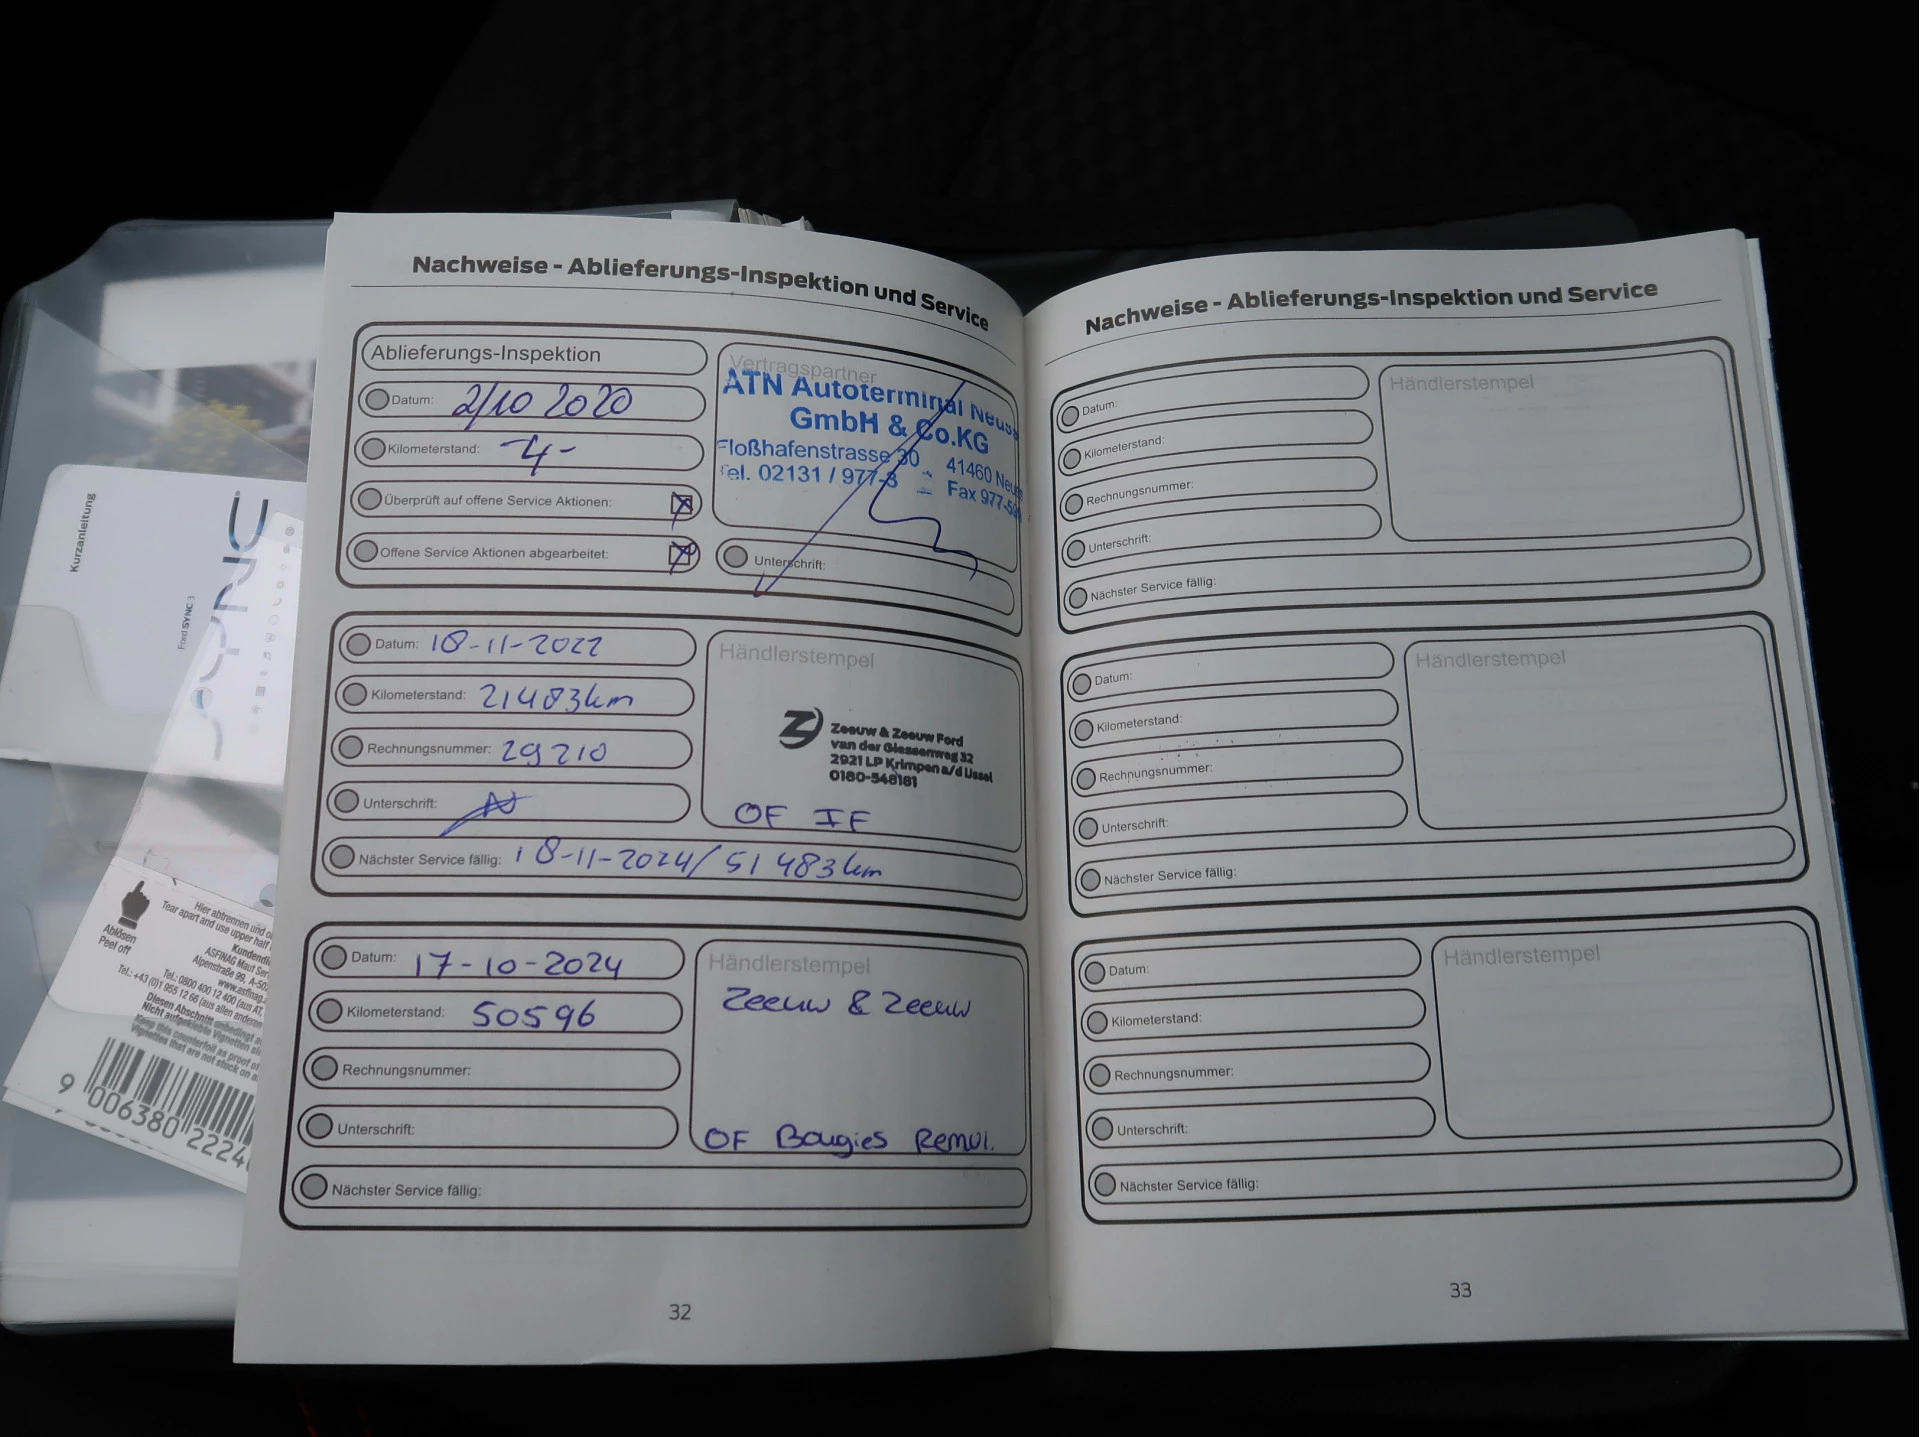 Nachweise - Ablieferungs-Inspektion und Service
Ablieferungs-Inspektion
Datum: 2/10 2020
Kilometerstand: -4-
Überprüft auf offene Service Aktionen:
Offene Service Aktionen abgearbeitet:
Vertragspartner
ATN Autoterminal Neuss
GmbH & Co.KG
Floßhafenstrasse 30 41460
Tel. 02131 / 977-8 Fax
Unterschrift:
Datum: 18-11-2022
Kilometerstand: 21483km
Rechnungsnummer: 29210
Unterschrift:
Nächster Service fällig: 18-11-2024/ 51483km
Händlerstempel
Zeeuw & Zeeuw Ford
van der Giessenweg 32
2921 LP Krimpen a/d IJssel
0180-548181
OF IF
Datum: 17-10-2024
Kilometerstand: 50596
Rechnungsnummer:
Unterschrift:
Nächster Service fällig:
Händlerstempel
Zeeuw & Zeeuw
OF Bougies Remvl.
32
Nachweise - Ablieferungs-Inspektion und Service
Datum:
Kilometerstand:
Rechnungsnummer:
Unterschrift:
Nächster Service fällig:
Händlerstempel
Datum:
Kilometerstand:
Rechnungsnummer:
Unterschrift:
Nächster Service fällig:
Händlerstempel
Datum:
Kilometerstand:
Rechnungsnummer:
Unterschrift:
Nächster Service fällig:
Händlerstempel
33
Kurzanleitung
Ford SYNC 3
SYNC
Ablösen
Peel off
Hier abtrennen und
Tear apart and use upper half
ASFINAG Maut
Alpenstraße 99,
Tel.: 0800 400 12 400 (aus AT,
Tel.: +43 (0)1 955 12 66 (aus allen anderen
Diesen Abschnitt unbedingt
Nicht aufgeklebte Vignetten
Keep this counterfoil as proof of
Vignettes that are not stuck on
9 006380 2224